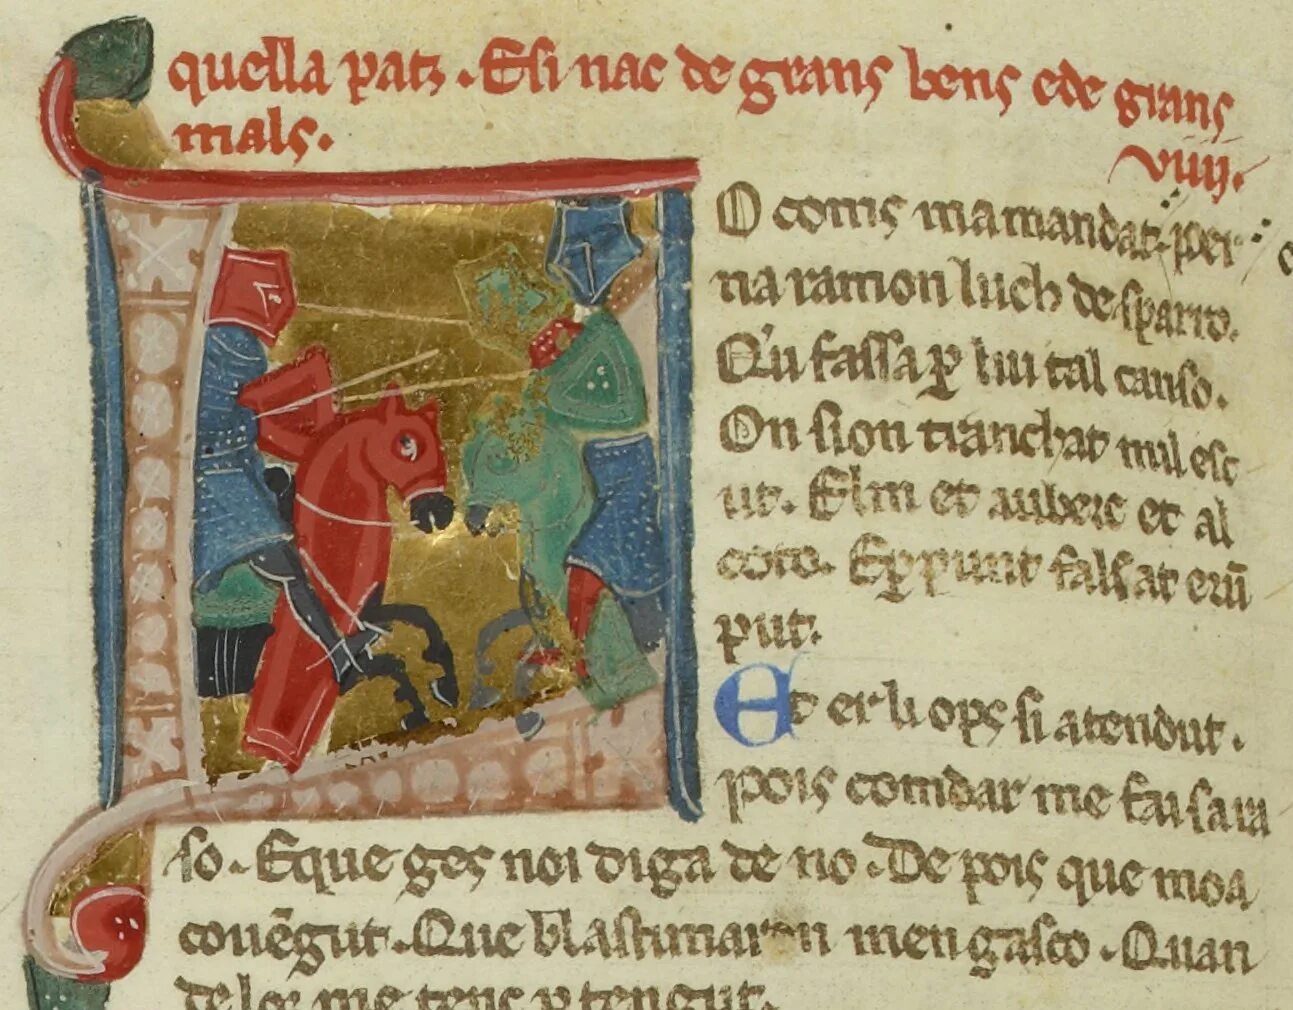 quella patz. Esi nac de grans bens ede grans
mals.
viiij.
O coms mamandat. per
na ramon luch desparro.
Qu fassa p lui tal canso.
On sion tranchat mil esc
ut. Elm et auberc et al
coto. Eperpunt falsat erū
put.
Et er li ops si atendut.
pois comdar me fai sa ra
so. Eque ges noi diga de no. De pois que moa
couēgut. Que blastimaran men gasco. Quan
de lor me tenc p tengut.